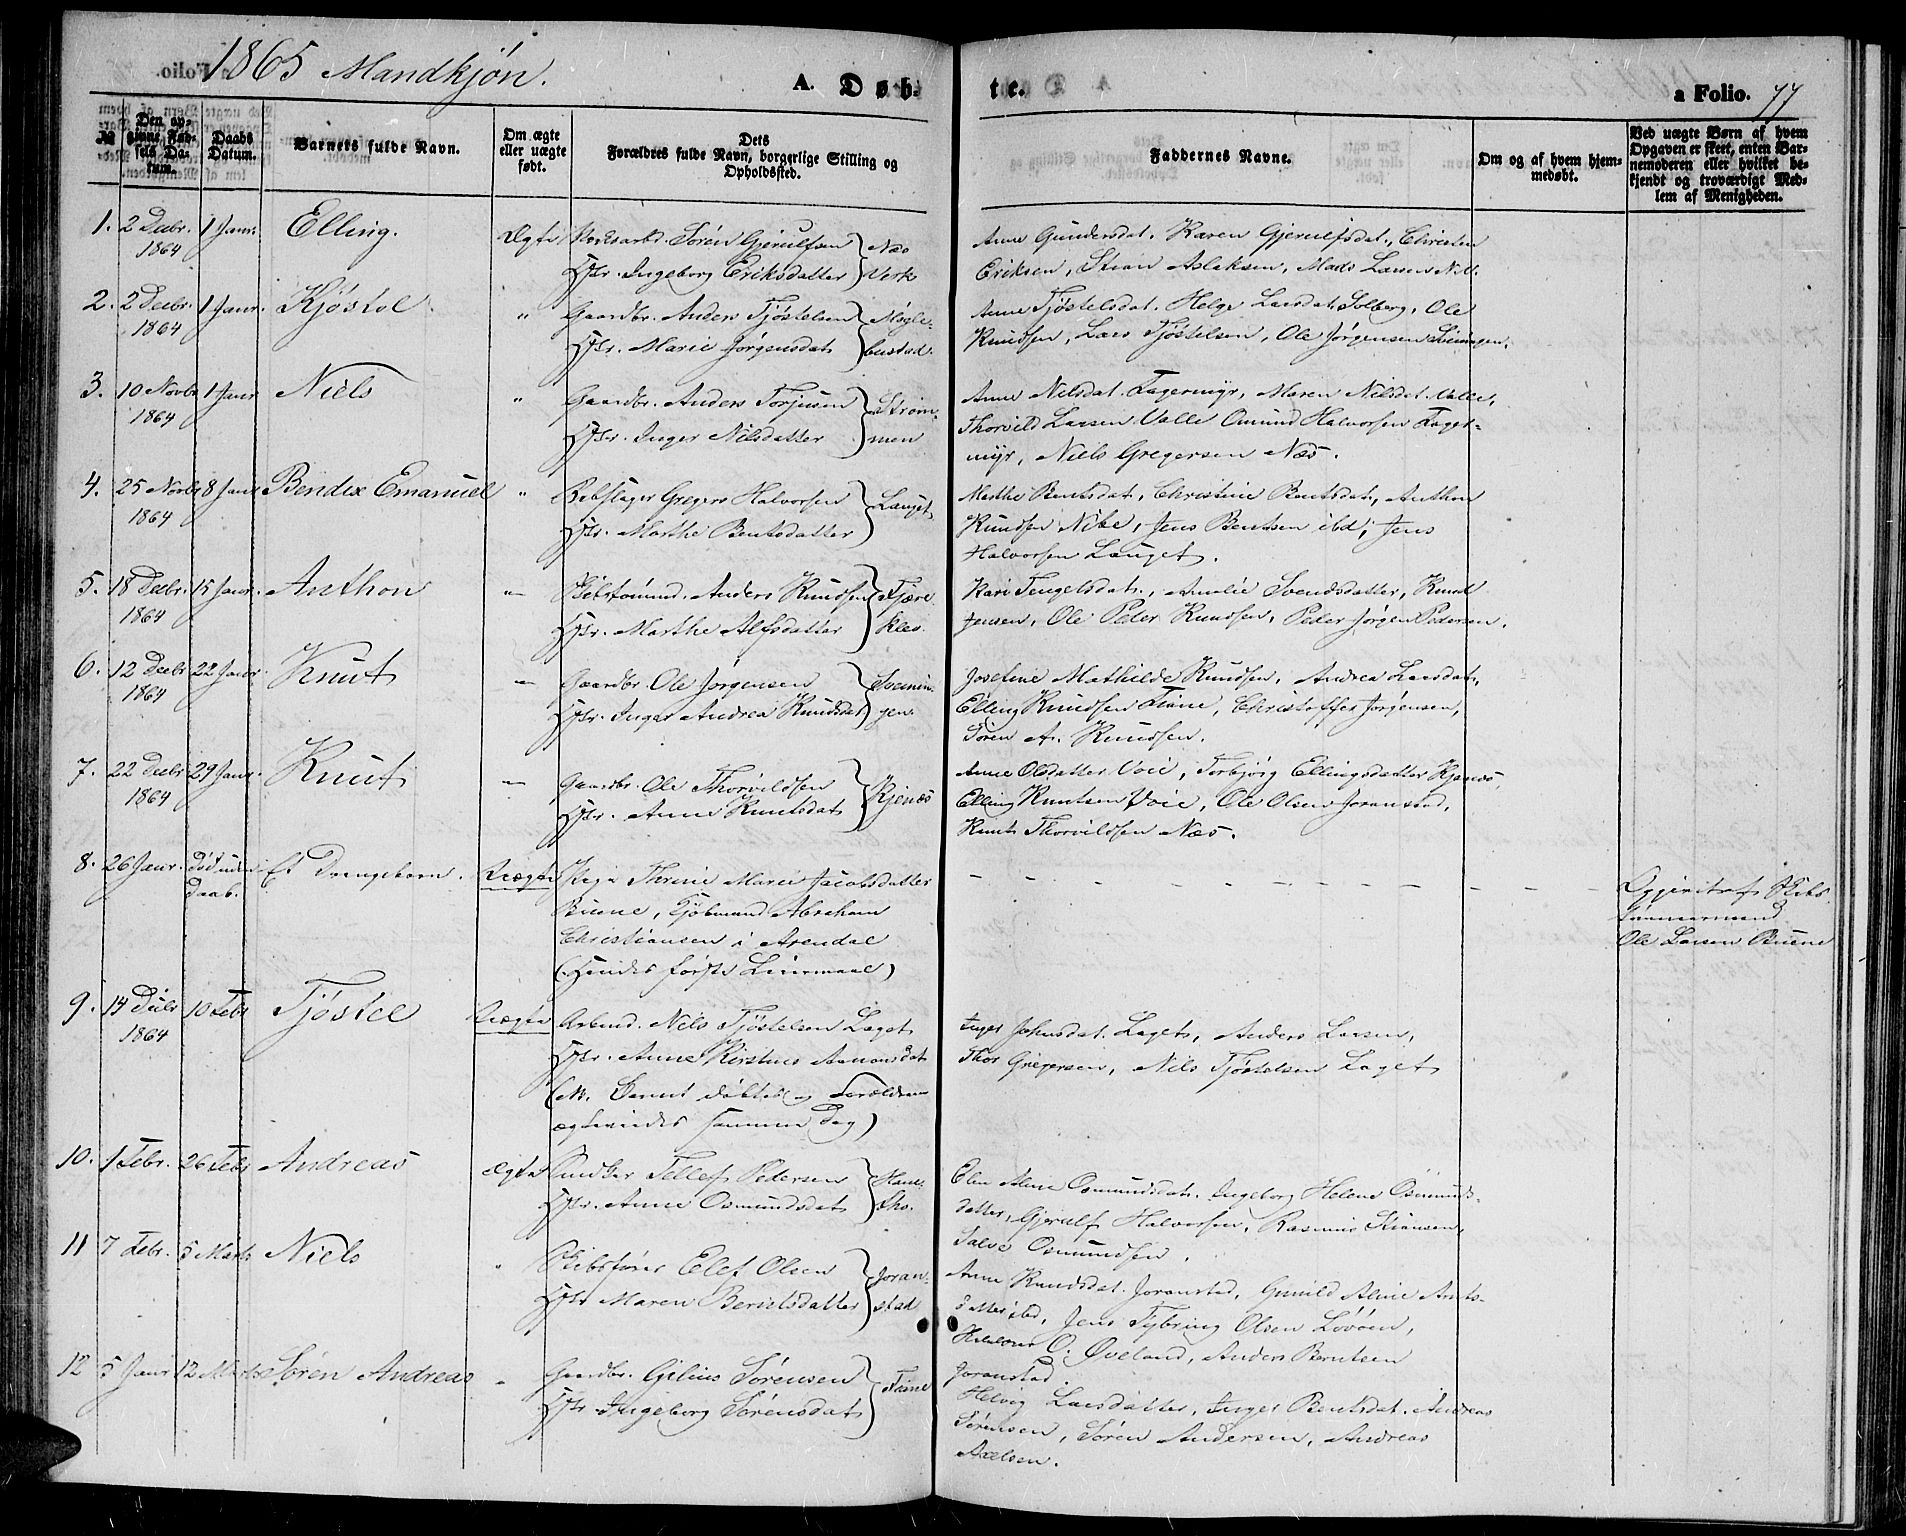 1865 Mandkjön.
A. Døb-
te.
a Folio. 77
№
Den op-
givne Fød-
sels Da-
tum.
Daabs
Datum.
Barnets fulde Navn.
Om ægte
eller uægte
født.
Dets
Forældres fulde Navn, borgerlige Stilling og
Opholdssted.
Faddernes Navne.
Om og af hvem hjem-
medøbt.
Ved uægte Børn af hvem
Opgaven er skeet, enten Bar-
nemoderen eller hvilket be-
kjendt og troværdigt Med-
lem af Menigheden.
1. 2 Decbr. 1 Janr. Elling. Ægte Værksarbd. Sören Gjerulfsen Næs
1864 Hstr. Ingeborg Eriksdatter Værk
Anne Gundersdat. Karen Gjerulfsdat., Christen
Eriksen, Stian Aslaksen, Mads Larsen
2. 2 Decbr. 1 Janr. Kjöstol. " Gaardbr. Anders Tjöstelsen Mögle-
1864 Hstr. Marie Jörgensdat bustad.
Anne Tjöstelsdat. Helge Larsdat. Solberg, Ole
Knudsen, Lars Tjöstelsen, Ole Jörgensen Sveningen.
3. 10 Novbr 1 Janr Niels " Gaardbr. Anders Torjusen Ström-
1864 Hstr. Inger Nilsdatter men
Anne Nilsdat. Fagermyr, Maren Nilsdat. Valle,
Thorvild Larsen Valle Omund Halvorsen Fager-
myr, Niels Gregersen Næs.
4. 25 Novbr 8 Janr Bendix Emanuel " Rebslager Gregers Halvorsen Lauget
1864 Hstr. Marthe Bentsdatter
Marthe Bentsdat, Christine Bentsdat, Anthon
Knudsen Nibe, Jens Bentsen ibd, Jens
Halvorsen Lauget.
5. 18 Decbr. 15 Janr. Anthon " Skibstömmd. Anders Knudsen Fjære
1864 Hstr. Marthe Alfsdatter Klev.
Kari Tengelsdat., Amalie Svendsdatter, Knud
Jensen, Ole Peder Knudsen, Peder Jörgen Pedersen.
6. 12 Decbr 22 Janr Knut " Gaardbr. Ole Jörgensen Svenin-
1864 Hstr. Inger Andrea Knudsdat gen.
Josefine Mathilde Knudsen, Andrea Larsdat,
Elling Knudsen Fiane, Christoffer Jörgensen,
Sören A. Knudsen.
7. 22 Decbr 29 Janr. Knut " Gaardbr. Ole Thorvildsen Kjenes
1864 Hstr. Anne Knutsdat
Anne Olsdatter Voie, Torbjörg Ellingsdatter Kjenes,
Elling Knutsen Voie, Ole Olsen Joranstad,
Knut Thorvildsen Næs.
8. 26 Janr. Död uden Et Drengebarn. Uægte Pige Thrine Marie Jacobsdatter
Daab. Buene, Kjöbmand Abraham
Christiansen i Arendal
(Hendes förste Leiermaal)
Opgivet af Skibs
tömmermand
Ole Larsen Buene
9. 14 Decbr 10 Febr Tjöstel Uægte Arbmd. Nils Tjöstelsen Laget
1864 Hstr. Anne Kirstine Aanonsdat
(NB. Barnet döbtes og Forældrene
ægteviedes samme Dag)
Inger Johnsdat. Laget, Anders Larsen,
Thor Gregersen, Nils Tjöstelsen Laget
10. 1 Febr. 26 Febr Andreas Ægte Tellef Pedersen Hane-
Hstr. Anne Osmundsdat tho.
Elen Aline Osmundsdat. Ingeborg Helene Osmunds-
datter, Gjerulf Halvorsen, Rasmus Stiansen,
Salve Osmundsen.
11 7 Febr. 5 Marts Niels " Skibsförer Elef Olsen Joran-
Hstr Maren Berntsdatter stad
Anne Knudsdat. Joranstad, Gunild Aline Arnts-
datter ibd, Jens Tybring Olsen Lövöen,
O. Öveland, Anders Berntsen
Joranstad.
12 5 Janr 12 Marts Sören Andreas " Gaardbr. Gilius Sörensen Fiane
Hstr. Ingeborg Sörensdat
Helvig Larsdatter, Inger Bentsdat. Andreas
Sörensen, Sören Andersen, Andreas
Axelsen.